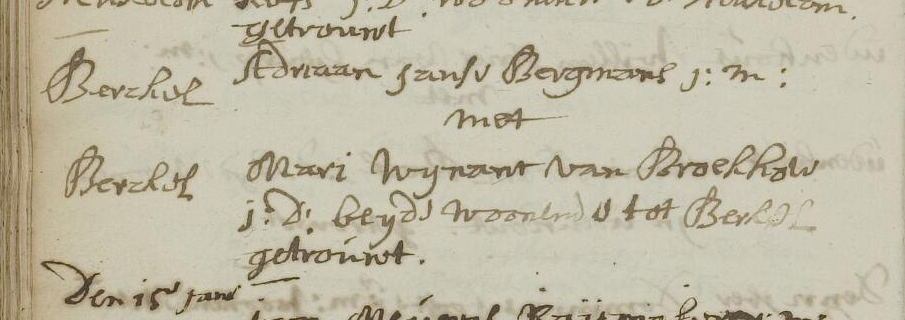 getrouwt
Berckel Adriaan Janse Bergmans j: m:
met
Berckel Mari Wijnant van Broekhov
j: D: beyde woonende tot Berkel
getrouwt.
Den 15e Janr